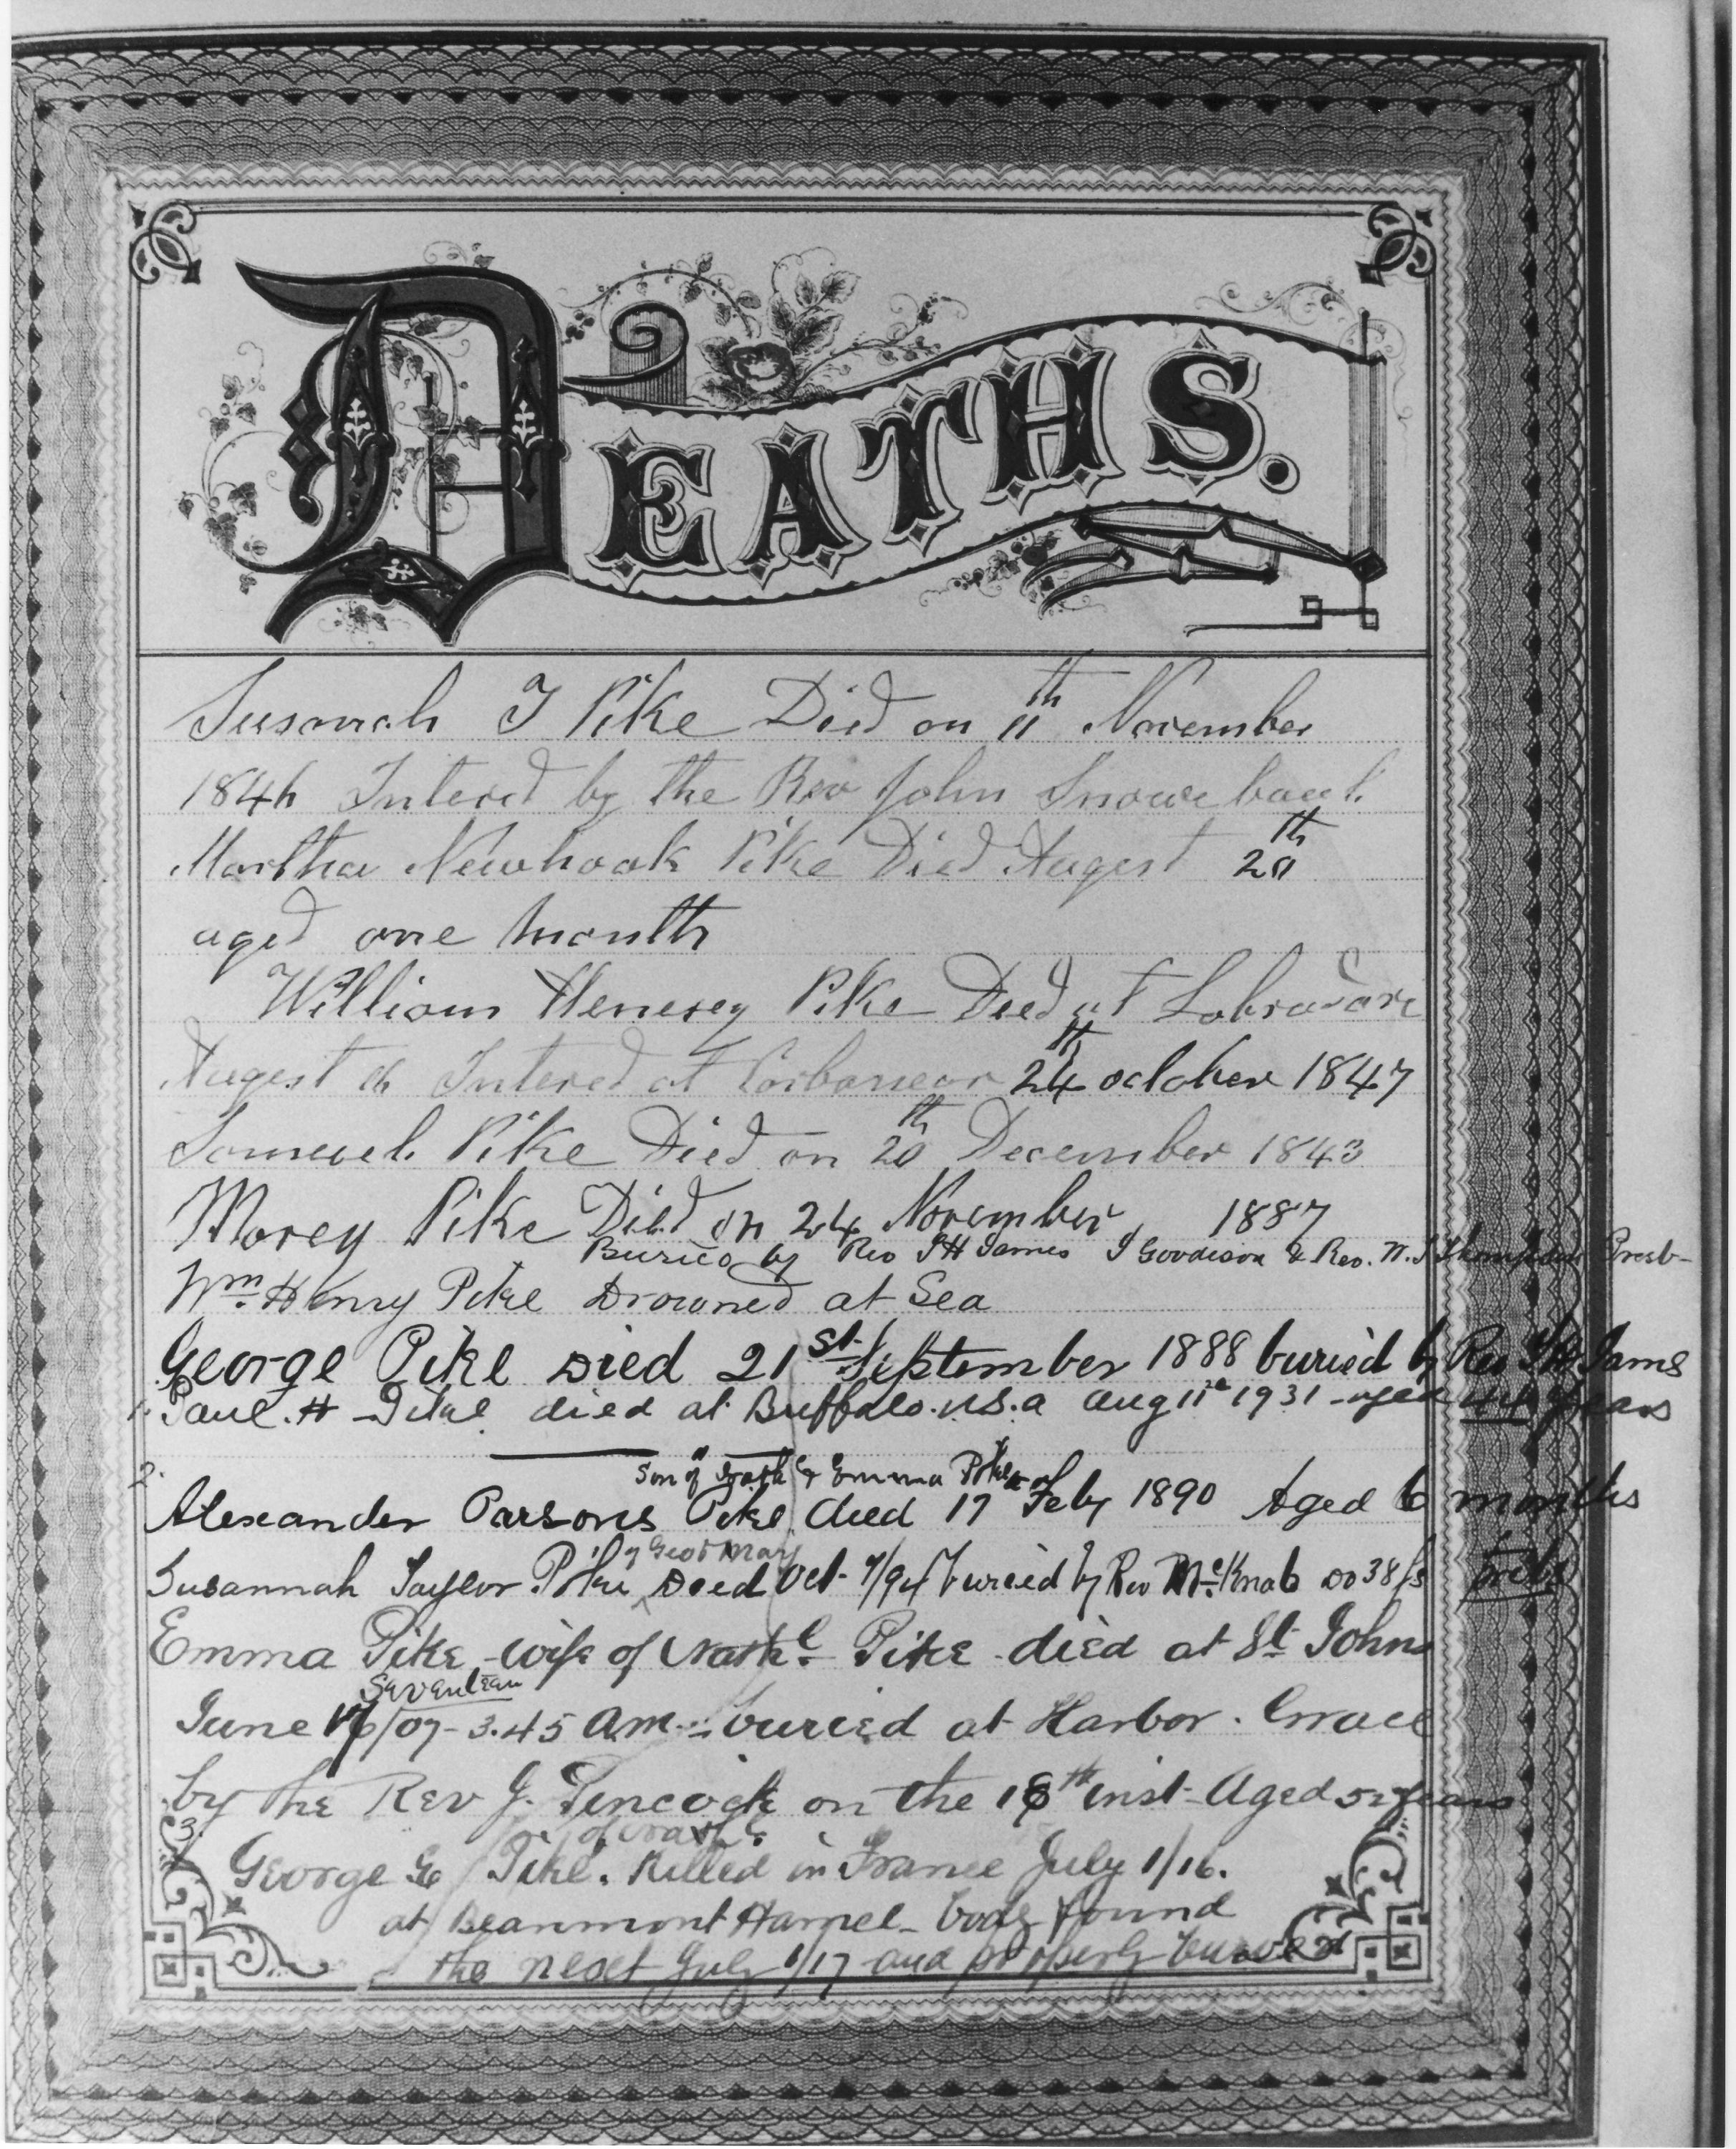 DEATHS.
Susanah T Pike Died on 11th November
1846 Intered by the Rev John Snowe
Martha Newhook Pike Died Augest 20th
aged one month
William Henerey Pike Died at Labradore
Augest & Intered at Carbonear 24th october 1847
Samuel Pike Died on 20th December 1843
Marey Pike Died on 24 November 1887
Buried by Rev J H James J Goodison & Rev. W. S Thompson Presb-
Wm. Henry Pike Drowned at Sea
George Pike Died 21st September 1888 buried by Rev J H James
1. Paul. H Pike died at Buffalo. U.S.a Aug 11th 1931 - aged 44 years
2. son of Nathl & Emma Pike
Alexander Parsons Pike died 17 Feby 1890 Aged 6 months
of Geo & Mary
Susannah Taylor Pike Died Oct 7/94 buried by Rev McKnab Do 38 presb
Emma Pike wife of Nathl. Pike died at St. Johns
Seventeen
June 17/07 - 3.45 am. buried at Harbor. Grace
by the Rev J. Pincock on the 18th inst Aged 52 years
3. of Nathl.
George G Pike. Killed in France July 1/16.
at Beaumont Hamel - body found
the next July 1/17 and properly buried